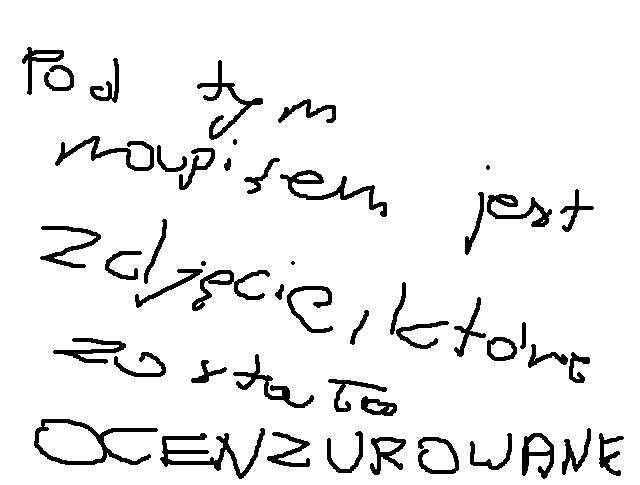 Pod tym
napisem jest
zdjęcie, które
zostało
OCENZUROWANE